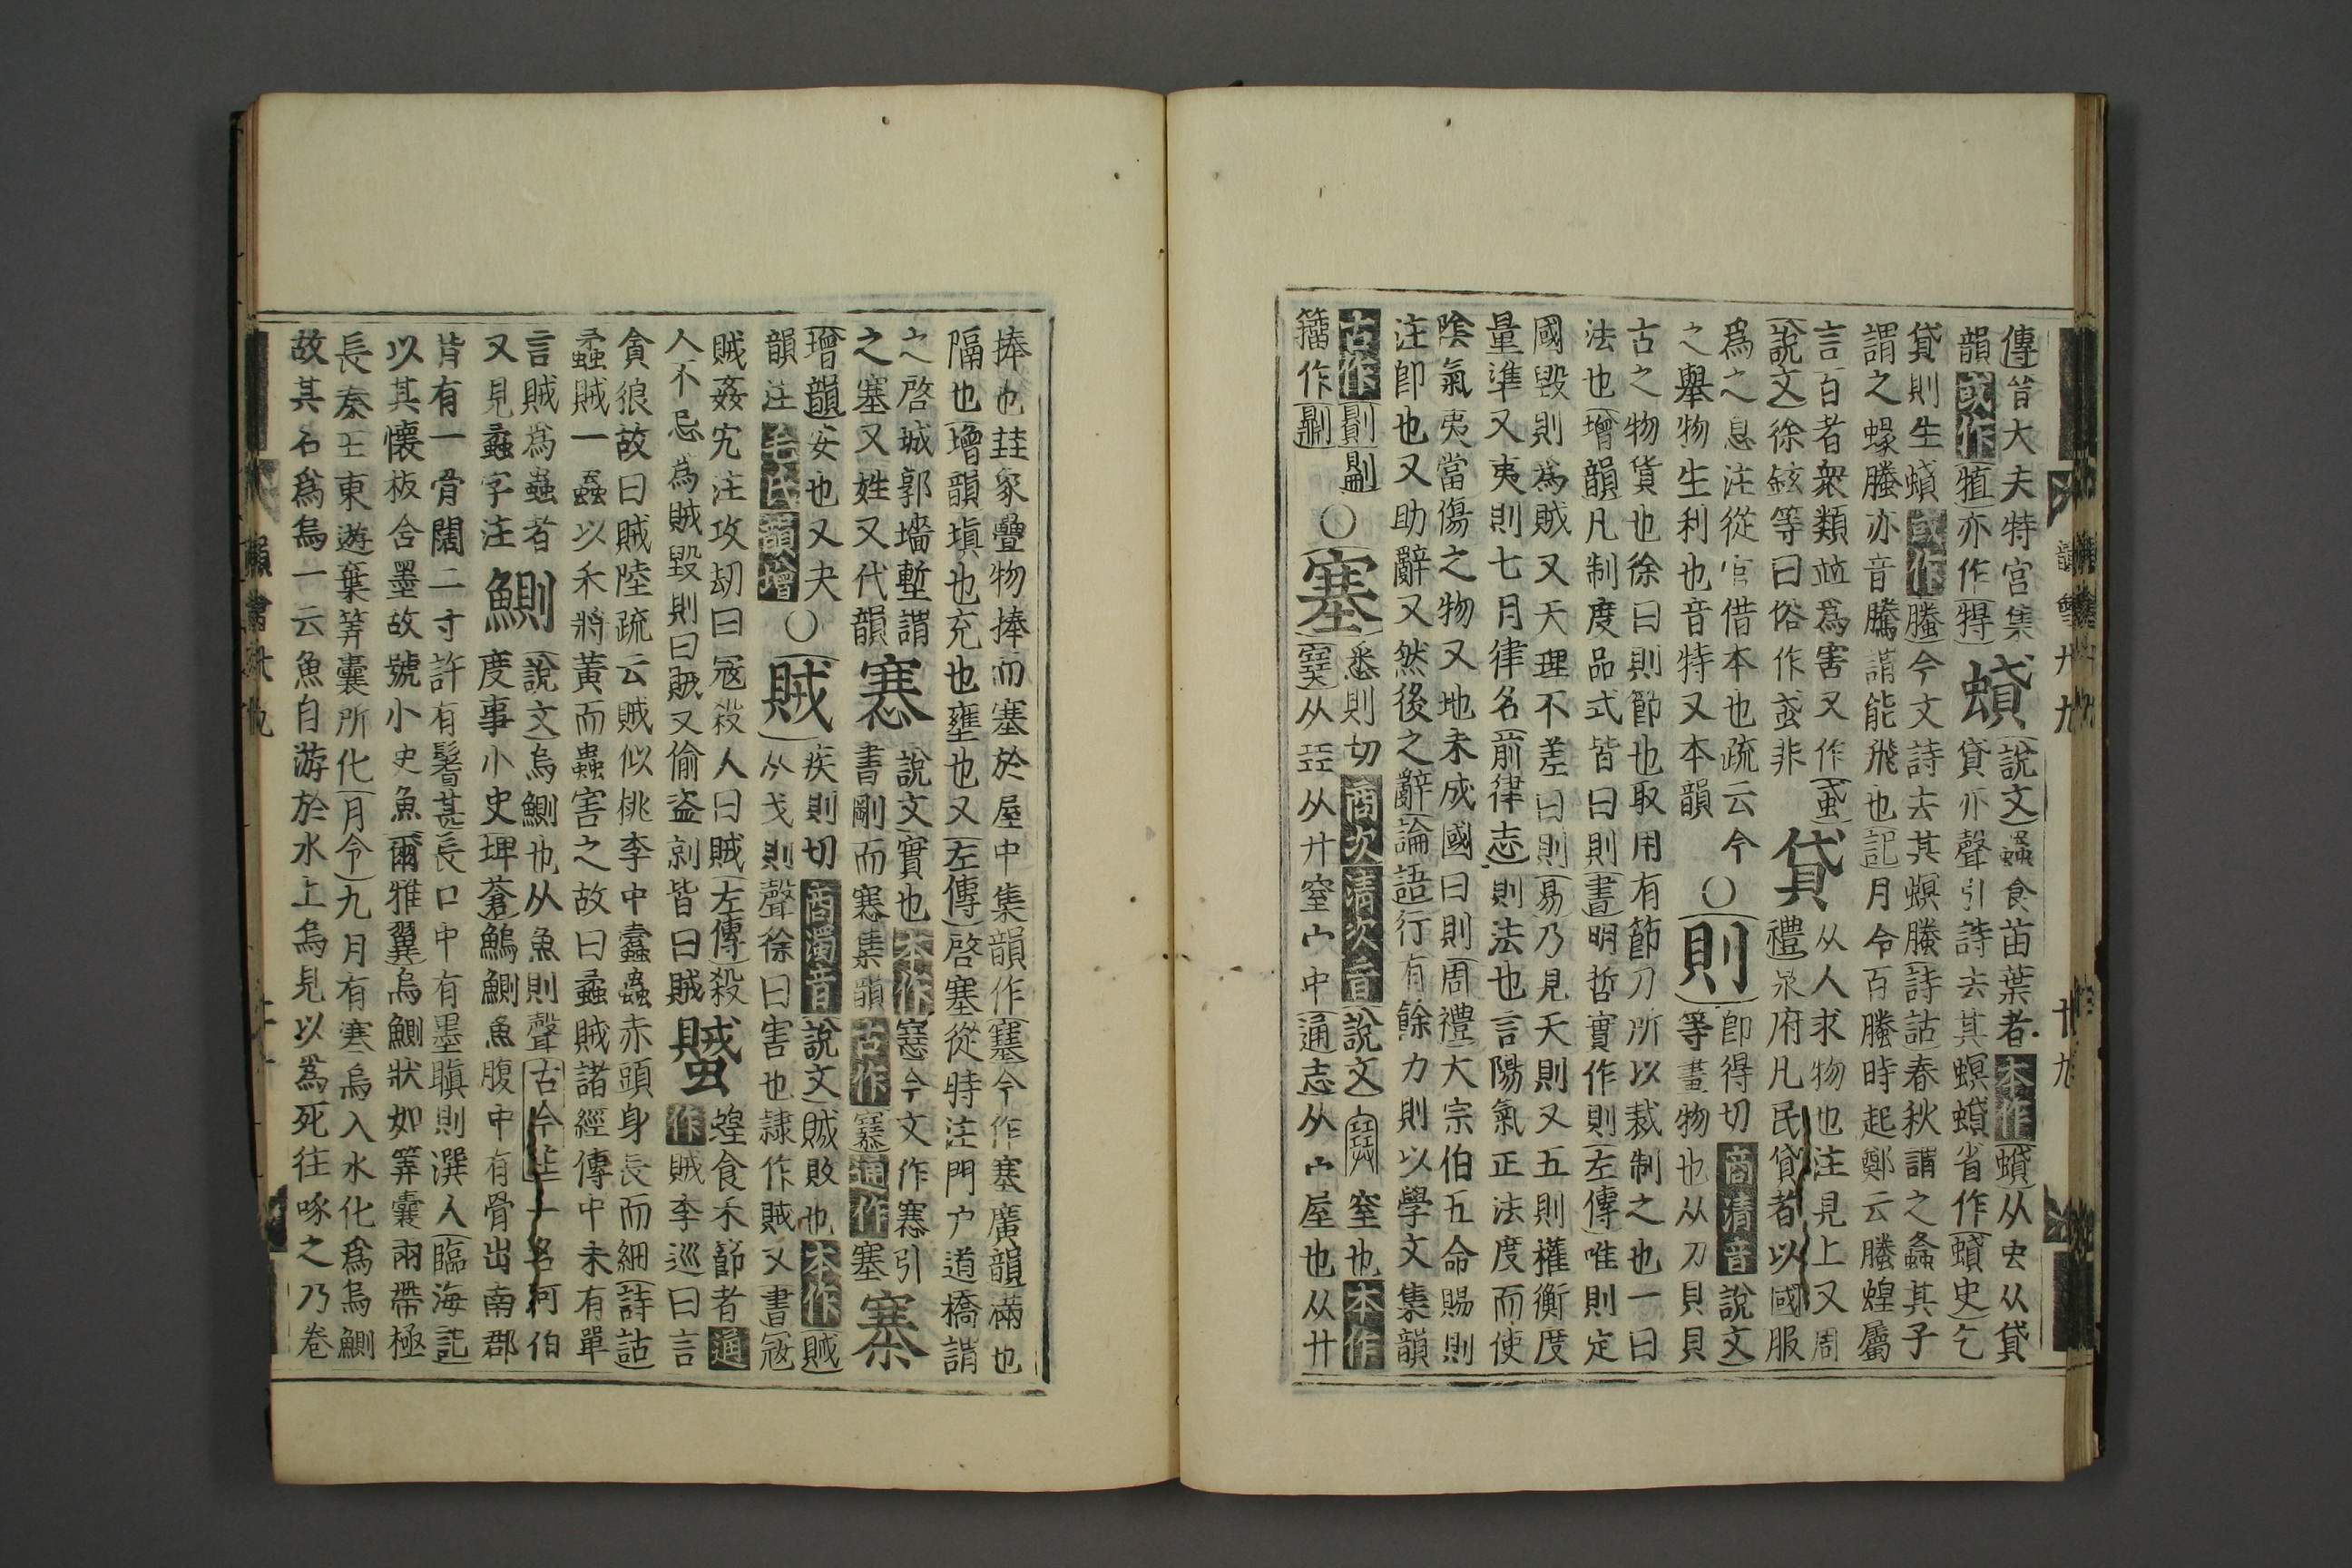 傳昔大夫特宮集
韻或作犆亦作㹑蟘說文蟲食苗葉者本作蟘从虫从貸
貸亦聲引詩去其螟蟘省作蟘史乞
貸則生蟘或作螣今文詩去其螟螣詩詁春秋謂之螽其子
謂之蝝螣亦音騰謂能飛也記月令百螣時起鄭云螣蝗屬
言百者衆類並爲害又作蟘
說文徐鉉等曰俗作蟘非貸从人求物也注見上又周
禮泉府凡民貸者以國服
爲之息注從官借本也疏云今
之舉物生利也音特又本韻○則即得切商清音說文
等畫物也从刀貝貝
古之物貨也徐曰則節也取用有節刀所以裁制之也一曰
法也增韻凡制度品式皆曰則書明哲實作則左傳唯則定
國毀則爲賊又天理不差曰則易乃見天則又五則權衡度
量準又夷則七月律名前律志則法也言陽氣正法度而使
陰氣夷當傷之物又地未成國曰則周禮大宗伯五命賜則
注即也又助辭又然後之辭論語行有餘力則以學文集韻
古作𠟭𠟻
籀作𠟔○塞悉則切商次清次音說文窒也本作
从㠭从廾窒宀中通志从宀屋也从廾
捧也㠭象疊物捧而塞於屋中集韻作今作塞廣韻滿也
隔也增韻塡也充也壅也又左傳啓塞從時注門户道橋謂
之啓城郭墻塹謂
之塞又姓又代韻𡫳說文實也本作今文作𡫳引
書剛而𡫳集韻古作通作塞寨
增韻安也又夬
韻注毛氏韻增○賊疾則切商濁音說文賊敗也本作賊
从戈則聲徐曰害也隷作賊又書寇
賊姦宄注攻刧曰寇殺人曰賊左傳殺
人不忌爲賊毀則曰賊又偷盜剥皆曰賊蠈蝗食禾節者通
作賊李巡曰言
貪狼故曰賊陸疏云賊似桃李中蠹蟲赤頭身長而細詩詁
蟊賊一蟲以禾將黃而蟲害之故曰蟊賊諸經傳中未有單
言賊爲蟲者
又見蟊字注鰂說文烏鰂也从魚則聲古今注一名河伯
度事小史埤蒼鰞鰂魚腹中有骨出南郡
皆有一骨闊二寸許有鬐甚長口中有墨瞋則潠人臨海記
以其懷板含墨故號小史魚爾雅翼烏鰂狀如筭囊兩帶極
長秦王東遊棄筭囊所化月令九月有寒烏入水化爲烏鰂
故其名爲烏一云魚自游於水上烏見以爲死往啄之乃卷